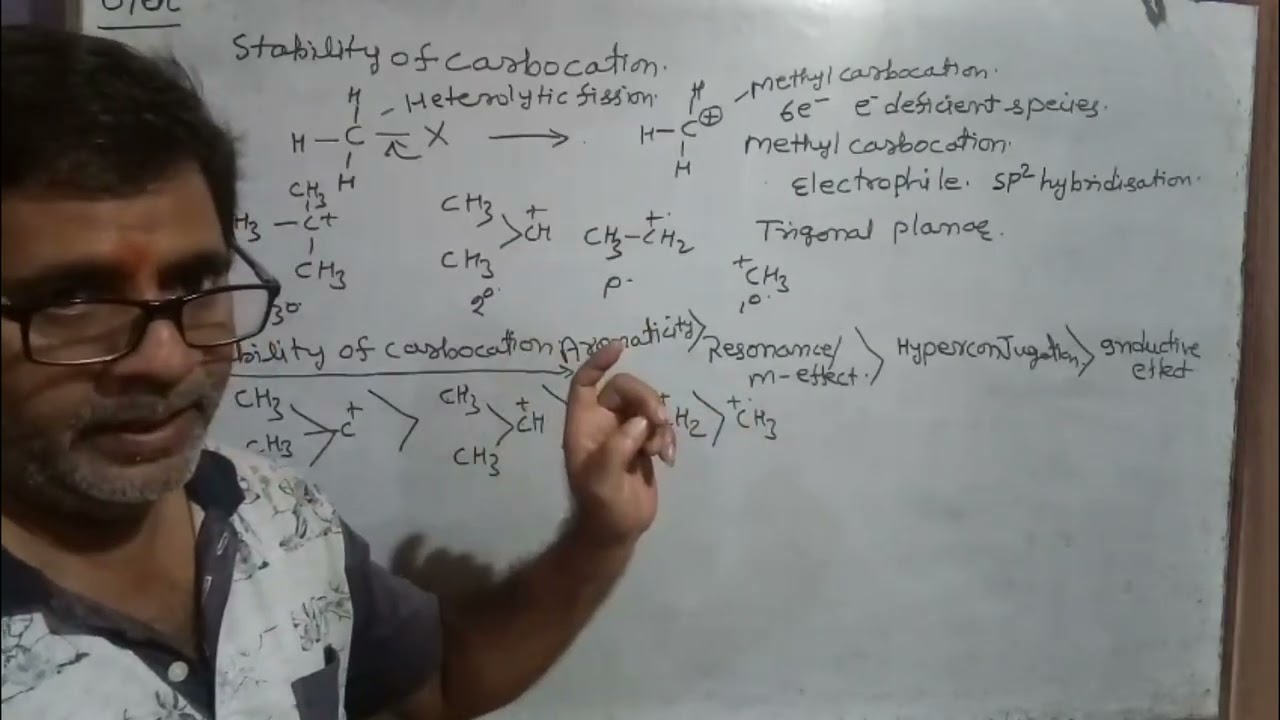 Stability of carbocation.
H Heterolytic fission.
H – C – X ⟶ H – C ⊕ methyl carbocation.
H H
6e⁻ e⁻ deficient species.
methyl carbocation.
Electrophile. sp² hybridisation.
Trigonal planar.
CH₃
H₃ – C+
CH₃
3°
CH₃ > +CH
CH₃
2°
CH₃ – +CH₂
P.
+CH₃
1°.
bility of carbocation Aromaticity > Resonance/ m-effect. > Hyperconjugation > Inductive effect
CH₃
CH₃ > C+ > CH₃ > +CH > +CH₂ > +CH₃
CH₃